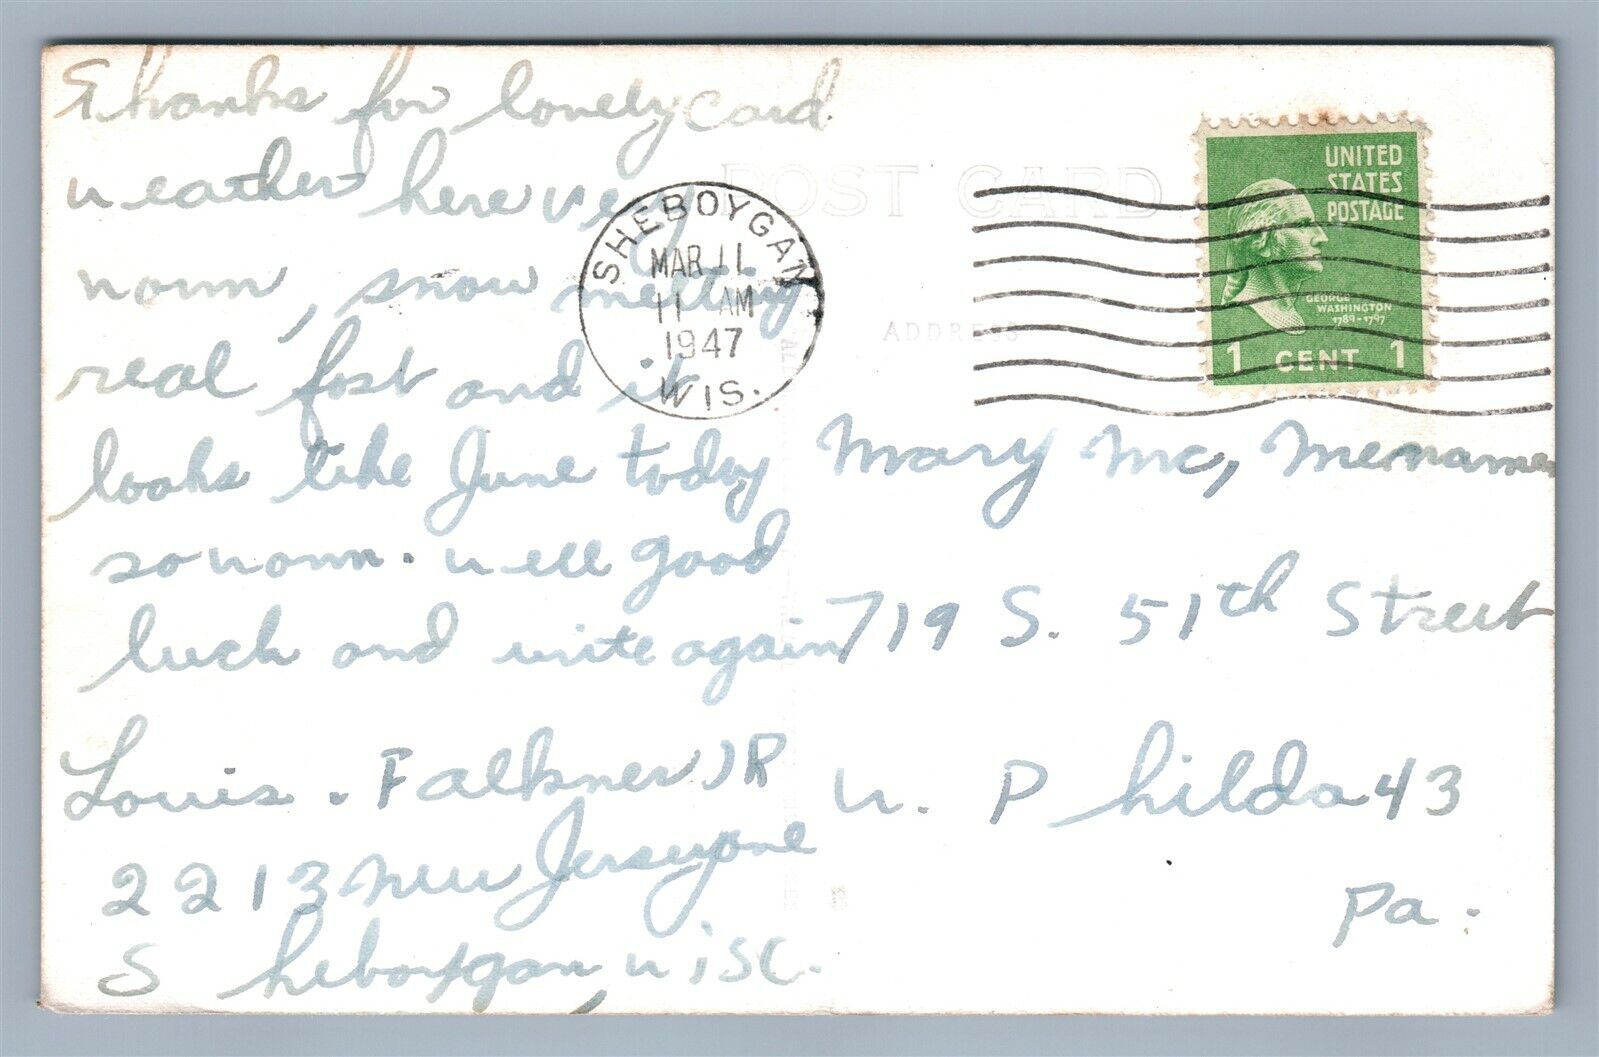 Thanks for lonely card.
weather here very
warm, snow melting
real fast and it
looks like June today
so warm. well good
luck and write again
Louis. Falkner JR
2213 New Jersey ave
Sheboygan, wisc.
POST CARD
ADDRESS
SHEBOYGAN
MAR 11
11 AM
1947
WIS.
UNITED
STATES
POSTAGE
GEORGE
WASHINGTON
1789-1797
1 CENT 1
Mary Mc, Menamen
719 S. 51th Street
W. Philda 43
Pa.